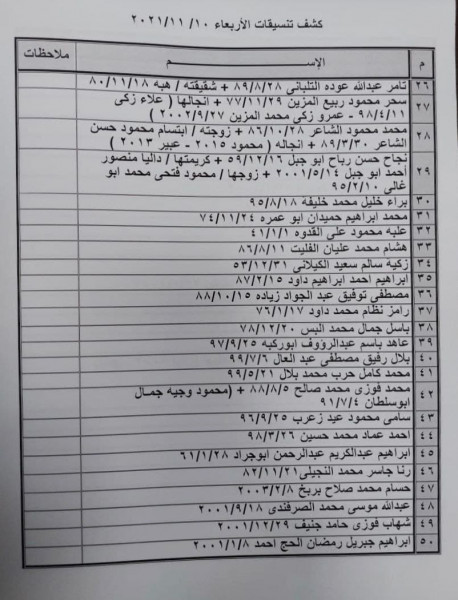 كشف تنسيقات الأربعاء ١٠/ ٢٠٢١/١١
م الإســـــــــم ملاحظات
٢٦ تامر عبدالله عوده التلباني ٨٩/٨/٢٨ + شقيقته / هبه ٨٠/١١/١٨
٢٧ سحر محمود ربيع المزين ٧٧/١١/٢٩ + انجالها ( علاء زكى
٩٨/٤/١١ - عمرو زكى محمد المزين ٢٠٠٢/٩/٢٧ )
٢٨ محمد محمود الشاعر ٨٦/١٠/٢٨ + زوجته / ابتسام محمود حسن
الشاعر ٨٩/٣/٣٠ + انجاله ( محمود ٢٠١٥ - عبير ٢٠١٣ )
٢٩ نجاح حسن رباح ابو جبل ٥٩/١٢/١٦ + كريمتها / داليا منصور
احمد ابو جبل ٢٠٠١/٥/١٤ + زوجها / محمود فتحى محمد ابو
غالى ٩٥/٢/١٠
٣٠ براء خليل محمد خليفة ٩٥/٨/١٨
٣١ محمد ابراهيم حميدان ابو عمره ٧٤/١١/٢٤
٣٢ علبه محمود على القدوه ٤١/١/١
٣٣ هشام محمد عليان الفليت ٨٦/٨/١١
٣٤ زكيه سالم سعيد الكيلانى ٥٣/١٢/٣١
٣٥ ابراهيم احمد ابراهيم داود ٨٧/٢/١٥
٣٦ مصطفى توفيق عبد الجواد زياده ٨٨/١٠/١٥
٣٧ رامز نظام محمد داود ٧٦/١/١٧
٣٨ باسل جمال محمد البس ٧٨/١٢/٢٠
٣٩ عاهد باسم عبدالرؤوف ابوركبه ٩٧/٩/٢٥
٤٠ بلال رفيق مصطفى عبد العال ٩٩/٧/٦
٤١ محمد كامل حرب محمد بلال ٩٩/٥/٢١
٤٢ محمد فوزى محمد صالح ٨٨/٨/٥ + (محمود وجيه جمال
ابوسلطان ٩١/٧/٤
٤٣ سامى محمود عيد زعرب ٩٦/٩/٢٥
٤٤ احمد عماد محمد حسين ٩٨/٣/٢٦
٤٥ ابراهيم عبدالكريم عبدالرحمن ابوجراد ٦١/١/٢٨
٤٦ رنا جاسر محمد النجيلى ٨٢/١١/٢١
٤٧ حسام محمد صلاح بربخ ٢٠٠٣/٢/٨
٤٨ عبدالله موسى محمد الصرفندى ٢٠٠١/٩/١٨
٤٩ شهاب فوزى حامد جنيف ٢٠٠١/١٢/٢٩
٥٠ ابراهيم جبريل رمضان الحج احمد ٢٠٠١/١/٨